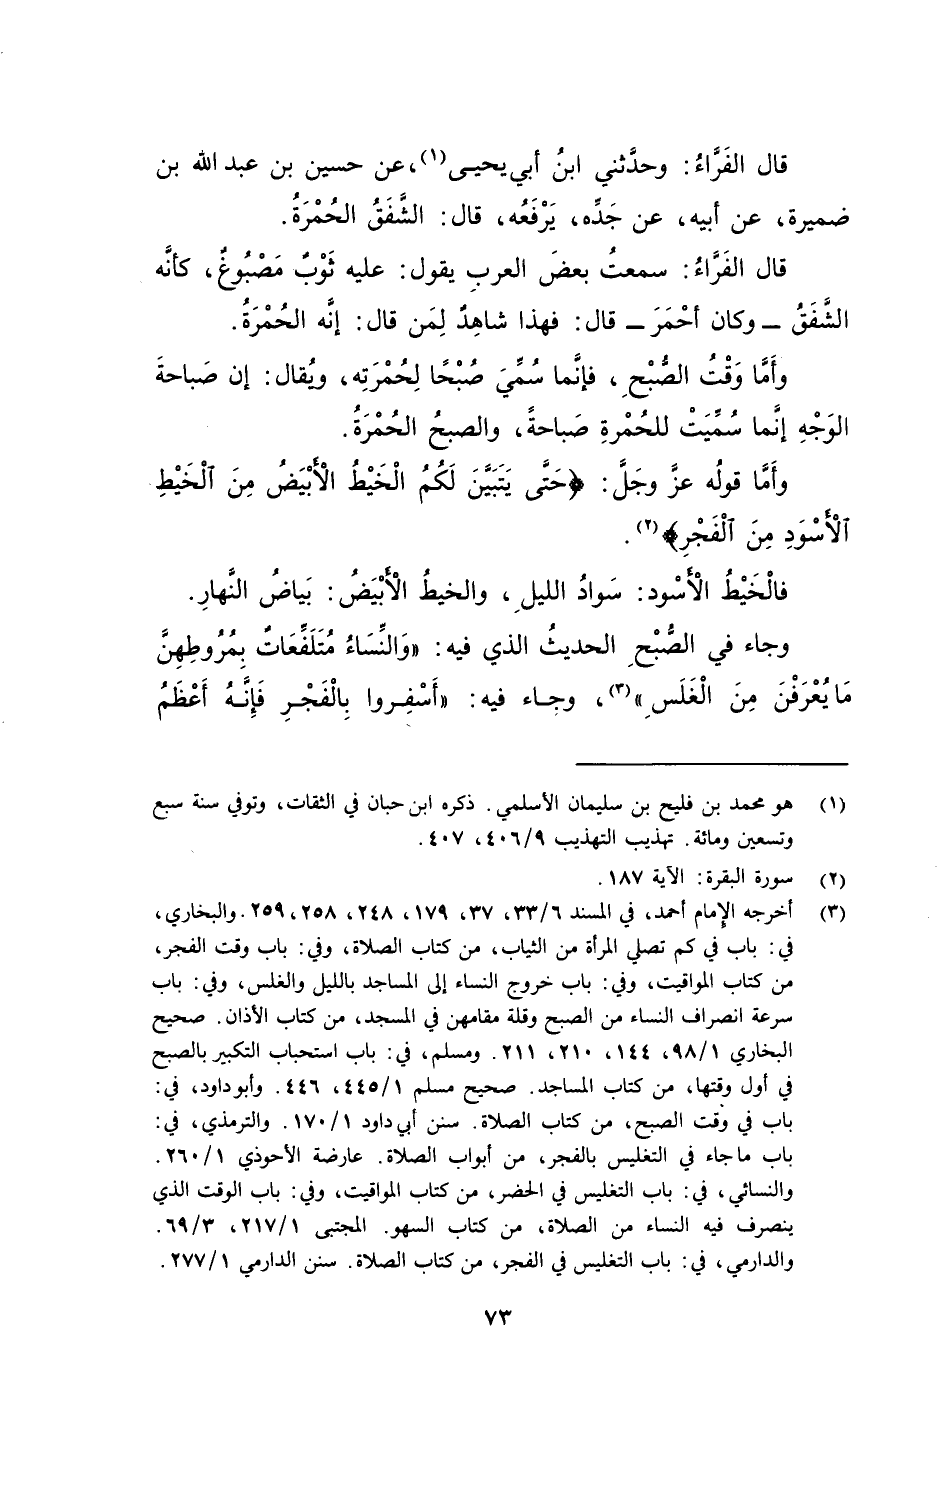 قال الفَرَّاءُ: وحدَّثني ابنُ أبي يحيـى(١)، عن حسين بن عبد الله بن
ضميرة، عن أبيه، عن جَدِّه، يَرْفَعُه، قال: الشَّفَقُ الحُمْرَةُ.
قال الفَرَّاءُ: سمعتُ بعضَ العربِ يقول: عليه ثَوْبٌ مَصْبُوغٌ، كأنَّه
الشَّفَقُ ــ وكان أحْمَرَ ــ قال: فهذا شاهِدٌ لِمَن قال: إنَّه الحُمْرَةُ.
وأمَّا وَقْتُ الصُّبْحِ، فإنَّما سُمِّيَ صُبْحًا لِحُمْرَتِه، ويُقال: إن صَباحةَ
الوَجْهِ إنَّما سُمِّيَتْ للحُمْرةِ صَباحةً، والصبحُ الحُمْرَةُ.
وأمَّا قولُه عزَّ وجَلَّ: ﴿حَتَّى يَتَبَيَّنَ لَكُمُ الْخَيْطُ الْأَبْيَضُ مِنَ ٱلْخَيْطِ
ٱلْأَسْوَدِ مِنَ ٱلْفَجْرِ﴾(٢).
فالْخَيْطُ الْأَسْود: سَوادُ الليلِ، والخيطُ الْأَبْيَضُ: بَياضُ النَّهارِ.
وجاء في الصُّبْحِ الحديثُ الذي فيه: «وَالنِّسَاءُ مُتَلَفِّعَاتٌ بِمُرُوطِهِنَّ
مَا يُعْرَفْنَ مِنَ الْغَلَسِ»(٣)، وجـاء فيه: «أَسْفِـروا بِالْفَجْـرِ فَإِنَّـهُ أَعْظَمُ
(١) هو محمد بن فليح بن سليمان الأسلمي. ذكره ابن حبان في الثقات، وتوفي سنة سبع
وتسعين ومائة. تهذيب التهذيب ٤٠٦/٩، ٤٠٧.
(٢) سورة البقرة: الآية ١٨٧.
(٣) أخرجه الإمام أحمد، في المسند ٣٣/٦، ٣٧، ١٧٩، ٢٤٨، ٢٥٨، ٢٥٩. والبخاري،
في: باب في كم تصلي المرأة من الثياب، من كتاب الصلاة، وفي: باب وقت الفجر،
من كتاب المواقيت، وفي: باب خروج النساء إلى المساجد بالليل والغلس، وفي: باب
سرعة انصراف النساء من الصبح وقلة مقامهن في المسجد، من كتاب الأذان. صحيح
البخاري ٩٨/١، ١٤٤، ٢١٠، ٢١١. ومسلم، في: باب استحباب التكبير بالصبح
في أول وقتها، من كتاب المساجد. صحيح مسلم ٤٤٥/١، ٤٤٦. وأبو داود، في:
باب في وقت الصبح، من كتاب الصلاة. سنن أبي داود ١٧٠/١. والترمذي، في:
باب ما جاء في التغليس بالفجر، من أبواب الصلاة. عارضة الأحوذي ٢٦٠/١.
والنسائي، في: باب التغليس في الحضر، من كتاب المواقيت، وفي: باب الوقت الذي
ينصرف فيه النساء من الصلاة، من كتاب السهو. المجتبى ٢١٧/١، ٦٩/٣.
والدارمي، في: باب التغليس في الفجر، من كتاب الصلاة. سنن الدارمي ٢٧٧/١.
٧٣